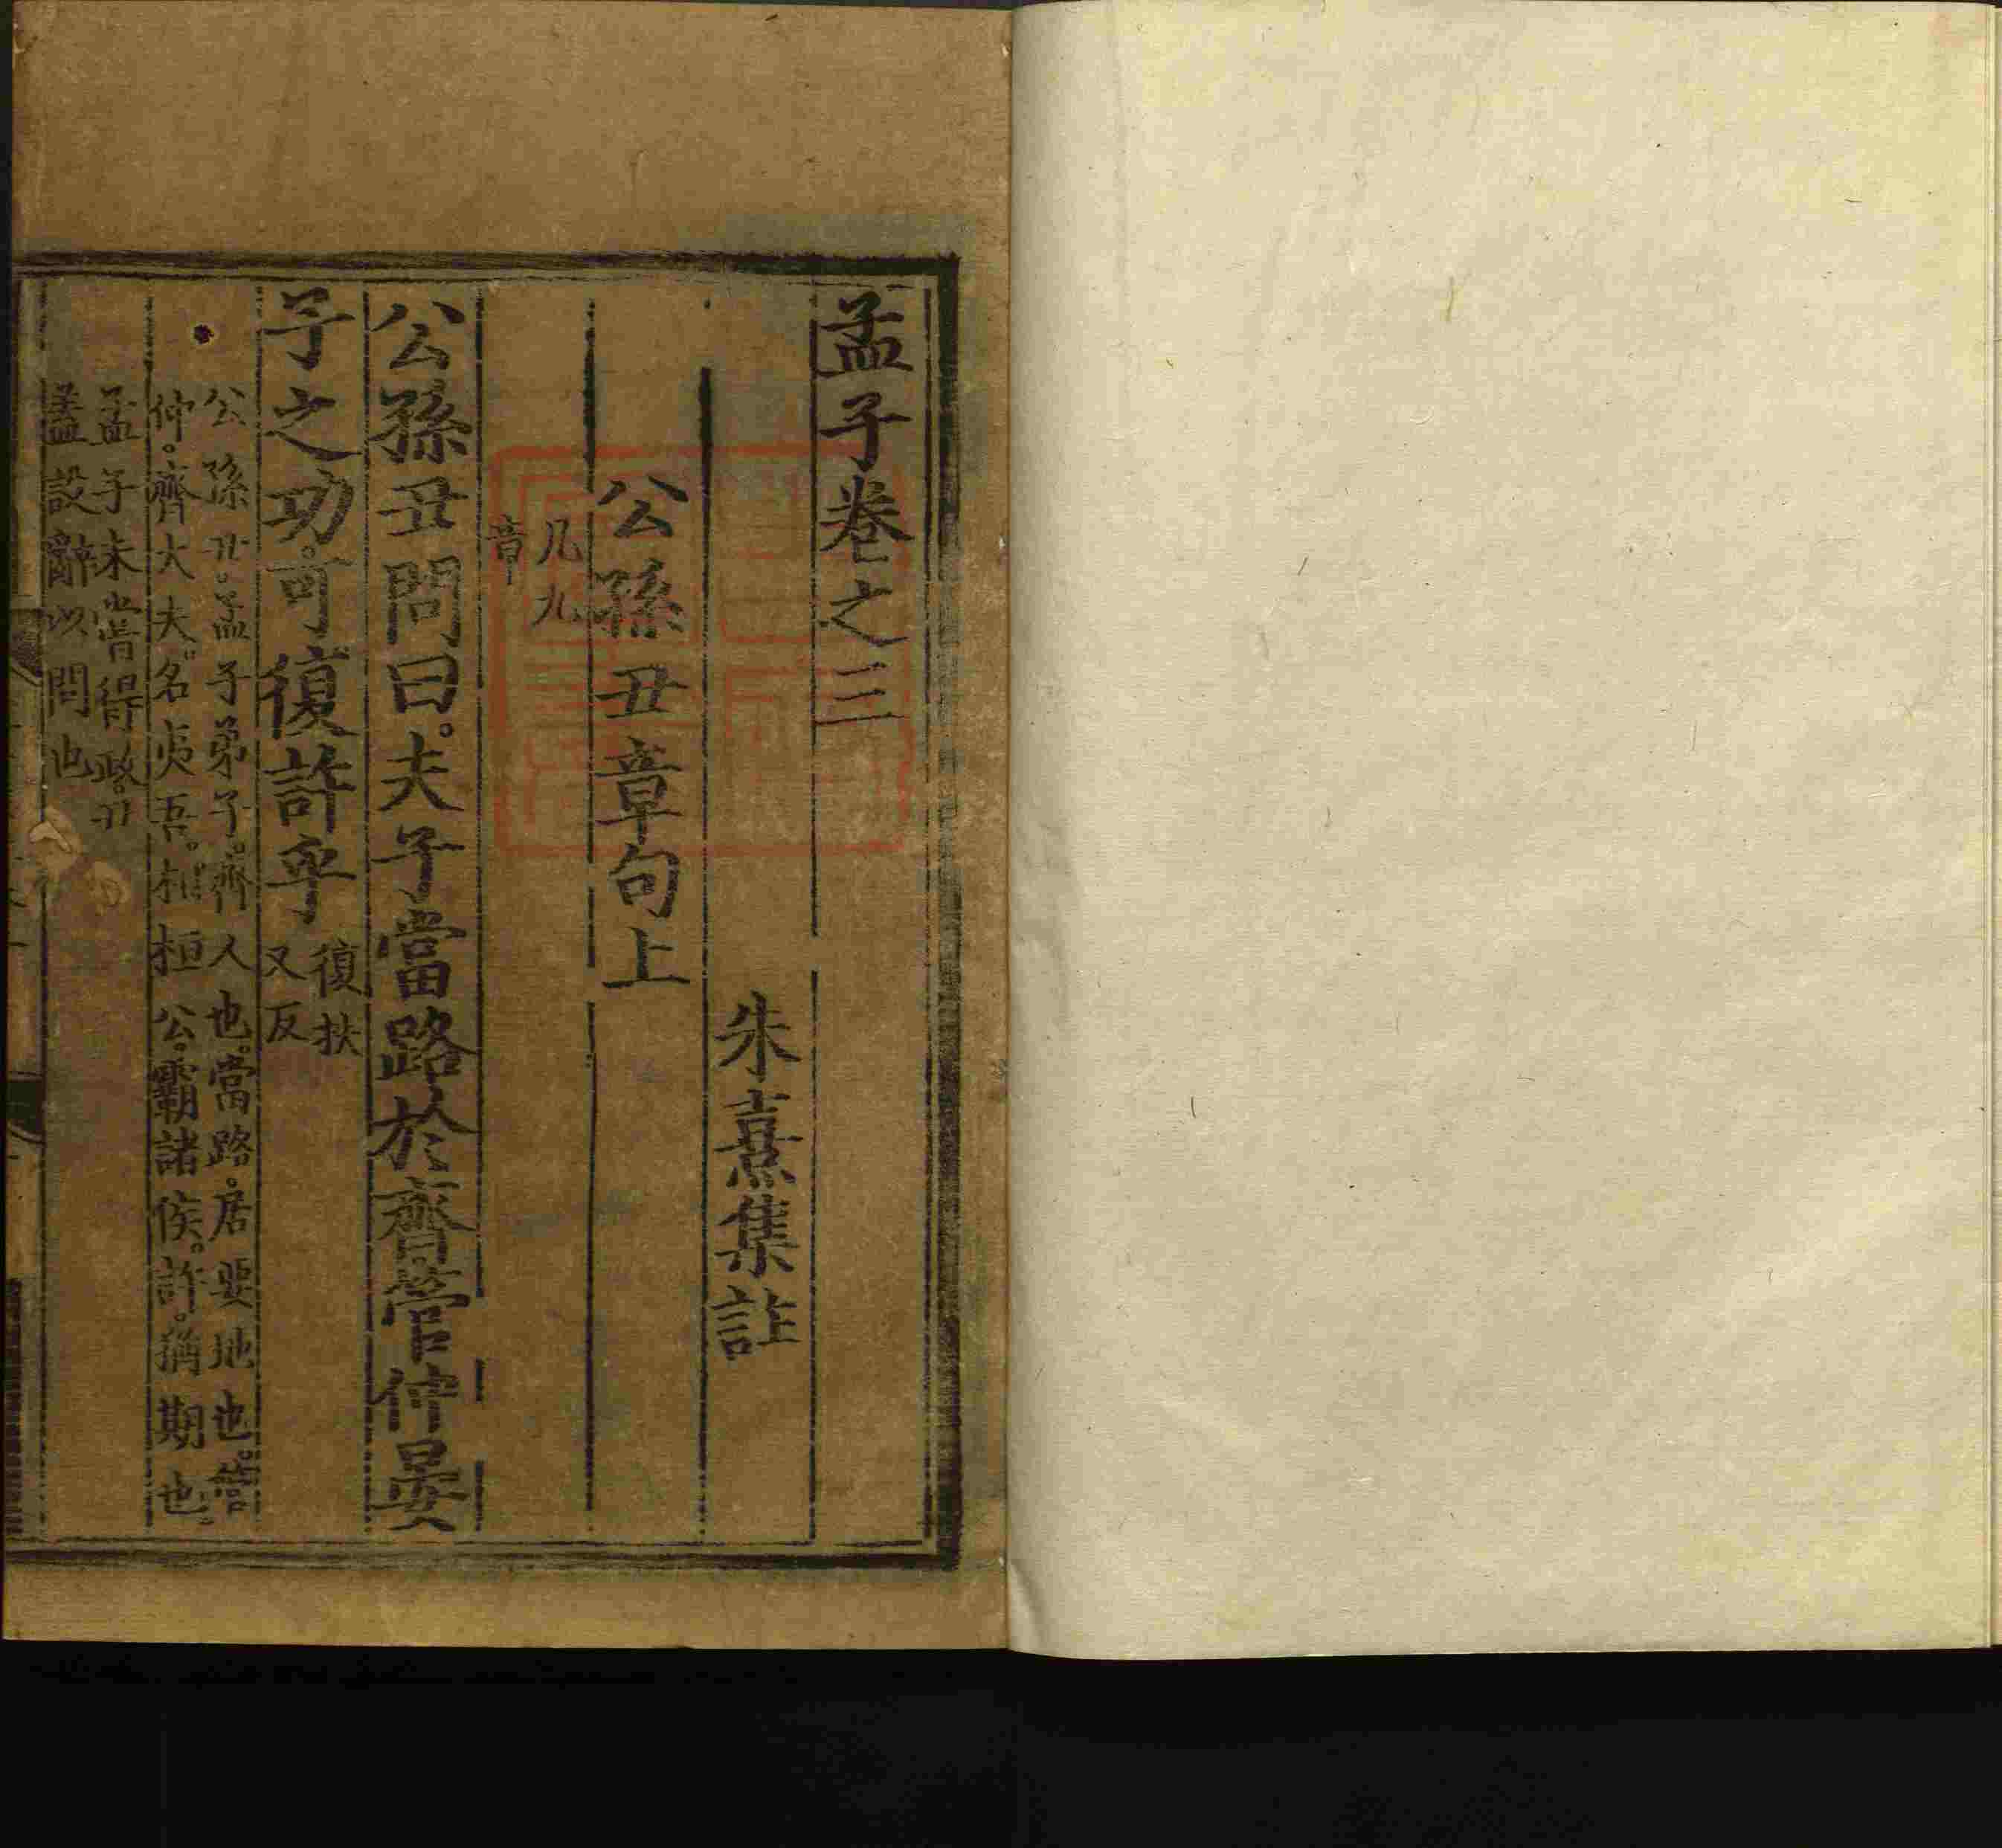 孟子卷之三
朱熹集註
公孫丑章句上
凡九
章
公孫丑問曰。夫子當路於齊管仲晏
子之功。可復許乎
復扶
又反
公孫丑。孟子弟子。齊人也。當路。居要地也。管
仲。齊大夫。名夷吾。相桓公。霸諸侯。許。猶期也。
孟子未嘗得政。丑
蓋設辭以問也